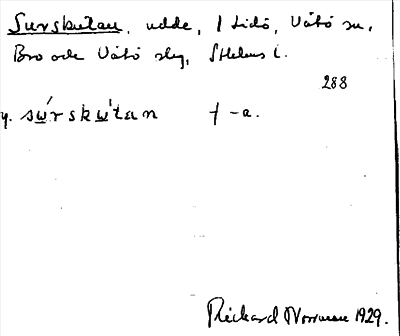 Surskutan, udde, I Lidö, Vätö sn,
Bro och Vätö skg, Sthlms l.
288
y. sẃrskẃtan f -a.
Rickard Norman 1929.